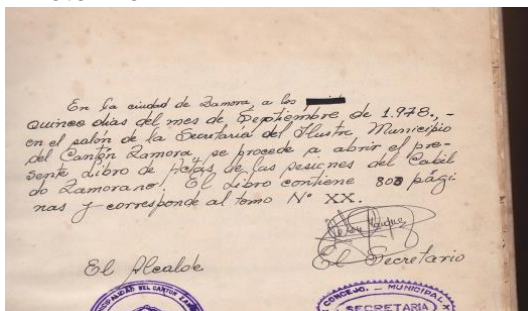 En la ciudad de Zamora, a los
quince días del mes de Septiembre de 1.978., -
en el salón de la Secretaría del Ilustre Municipio
del Cantón Zamora, se procede a abrir el pre-
sente Libro de Actas de las sesiones del Cabil
do Zamorano. El Libro contiene 800 pági
nas y corresponde al tomo N° XX.
El Alcalde
El Secretario
CONCEJO. - MUNICIPAL
SECRETARIA